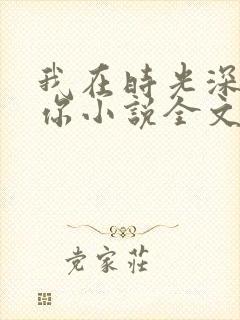 我在時光深
你小說全文
党家莊